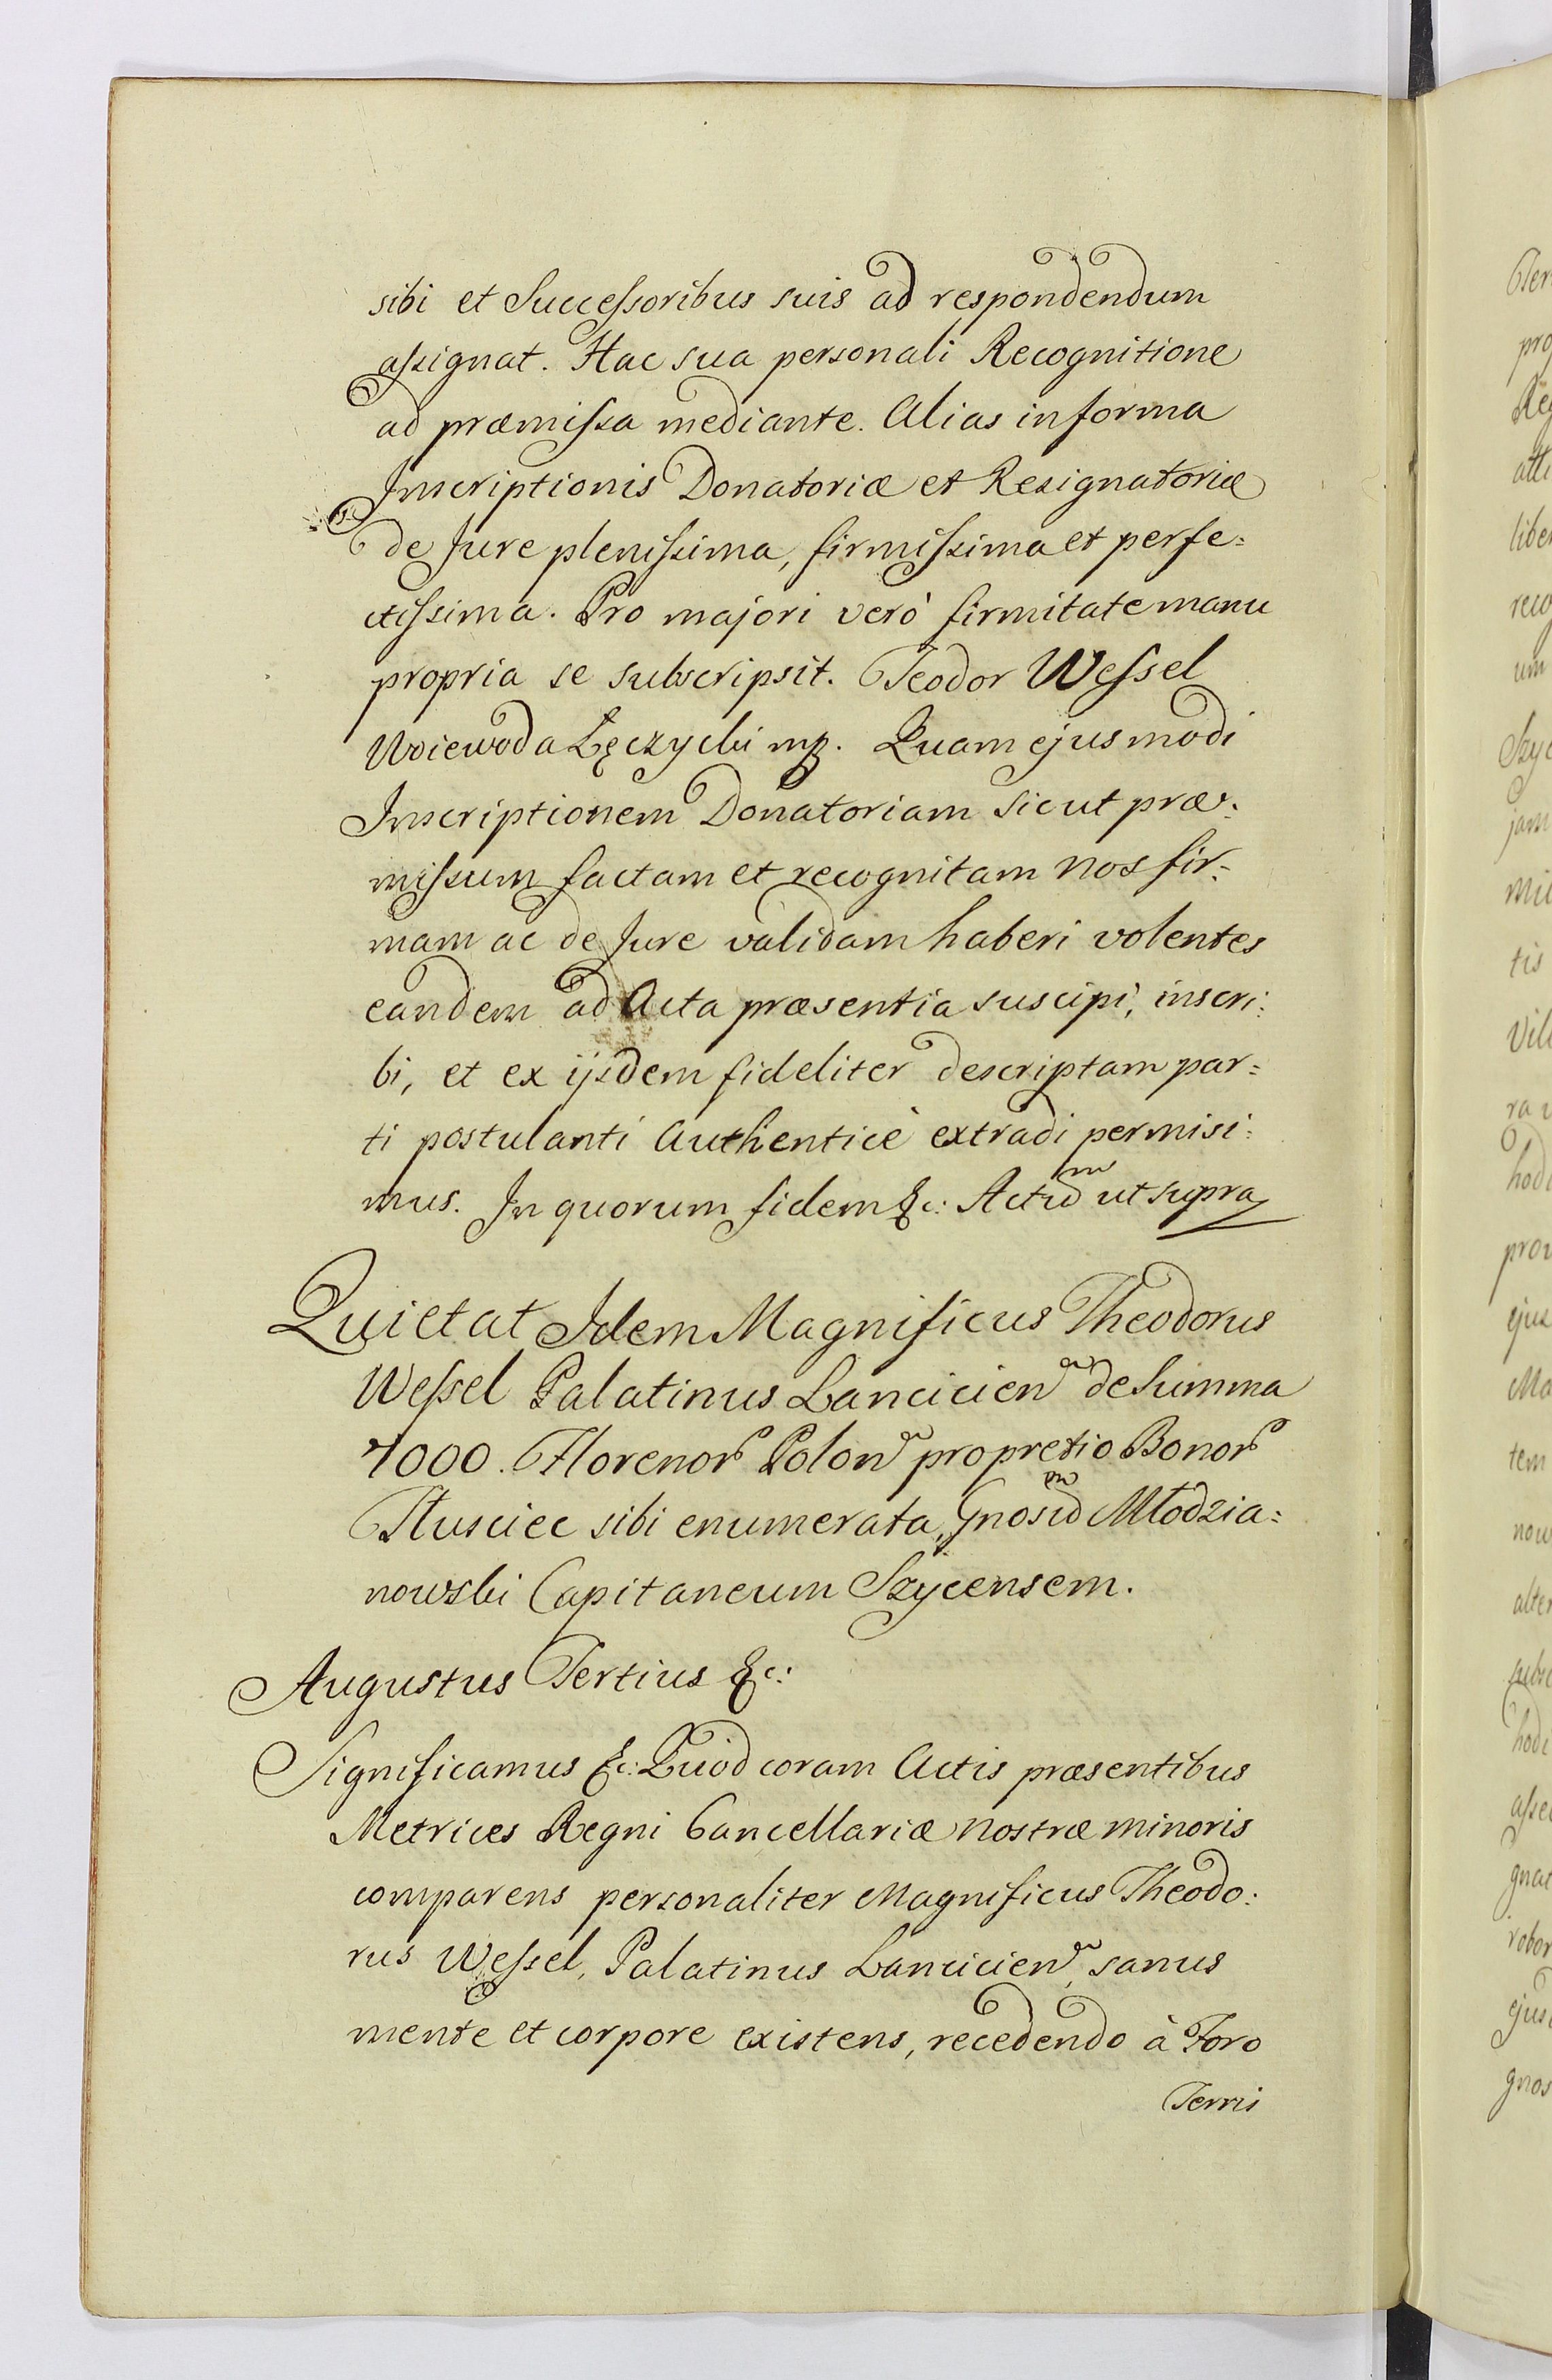 sibi et Successoribus suis ad respondendum
assignat. Hac sua personali Recognitione
ad præmissa mediante. Alias in forma
Inscriptionis Donatoriæ et Resignatoriæ
de Jure plenissima, firmissima et perfe=
ctissima. Pro majori verò firmitate manu
propria se subscripsit. Teodor Wessel
Woiewoda Łęczycki mp. Quam ejusmodi
Inscriptionem Donatoriam sicut præ=
missum factam et recognitam nos fir=
mam ac de Jure validam haberi volentes
eandem ad Acta præsentia suscipi, inscri=
bi, et ex ijsdem fideliter descriptam par=
ti postulanti Authenticè extradi permisi=
mus. In quorum fidem &c: Actum ut supra
Quietat Idem Magnificus Theodorus
Wessel Palatinus Lancicien de Summa
7000. Florenor Polon pro pretio Bonor
Tłusciec sibi enumerata, Gnosum Młodzia=
nowski Capitaneum Szycensem.
Augustus Tertius &c:
Significamus &c: Quod coram Actis præsentibus
Metrices Regni Cancellariæ nostræ minoris
comparens personaliter Magnificus Theodo=
rus Wessel, Palatinus Lancicien, sanus
mente et corpore existens, recedendo à Foro
Terris